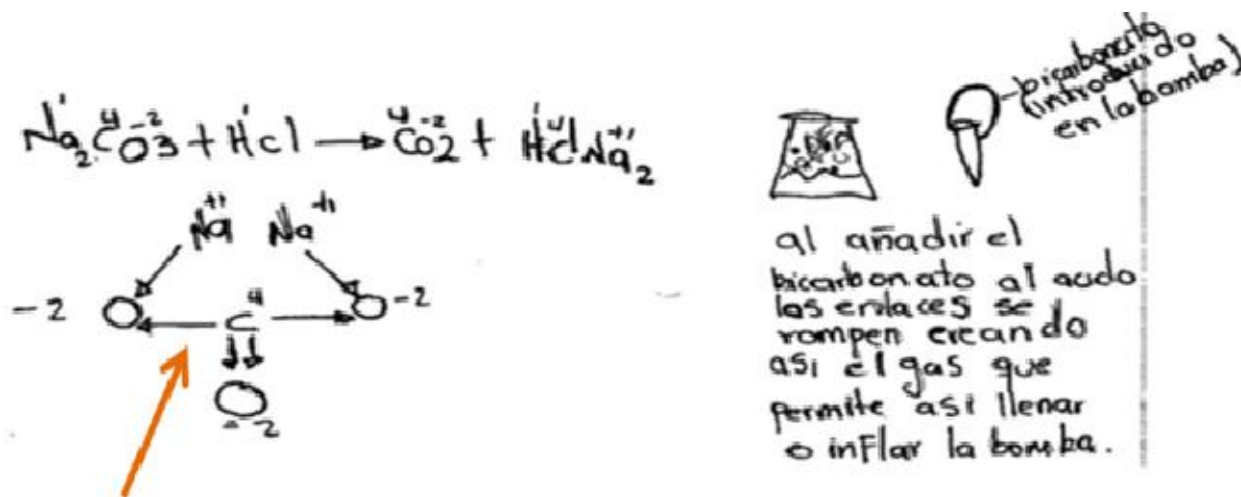 Na₂⁺¹C⁴O₃⁻² + H¹Cl → C⁴O₂⁻² + H¹Cl⁴Na₂⁺¹
Na⁺¹ Na⁺¹
-2 O C⁴ O -2
O
-2
bicarbonato
(introducido
en la bomba)
al añadir el
bicarbonato al acido
los enlaces se
rompen creando
asi el gas que
permite asi llenar
o inflar la bomba.